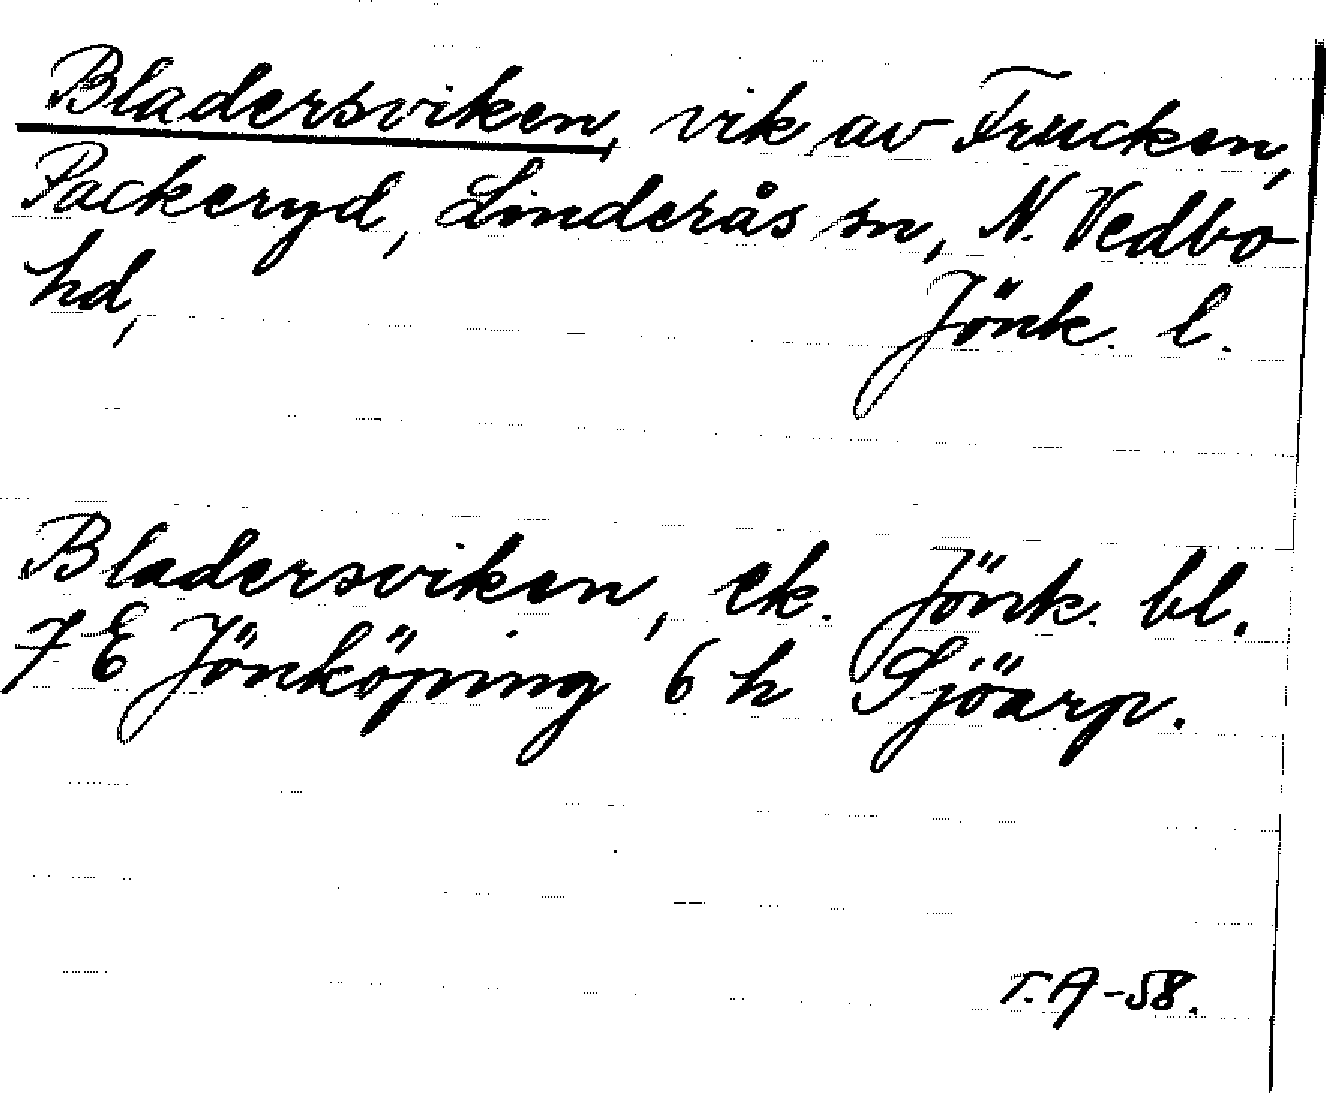 Bladersviken, vik av Frucken,
Packeryd, Linderås sn, N. Vedbo
hd, Jönk. l.
Bladersviken, ek. Jönk. bl.
7 E Jönköping 6 h Sjöarp.
T.A -58.